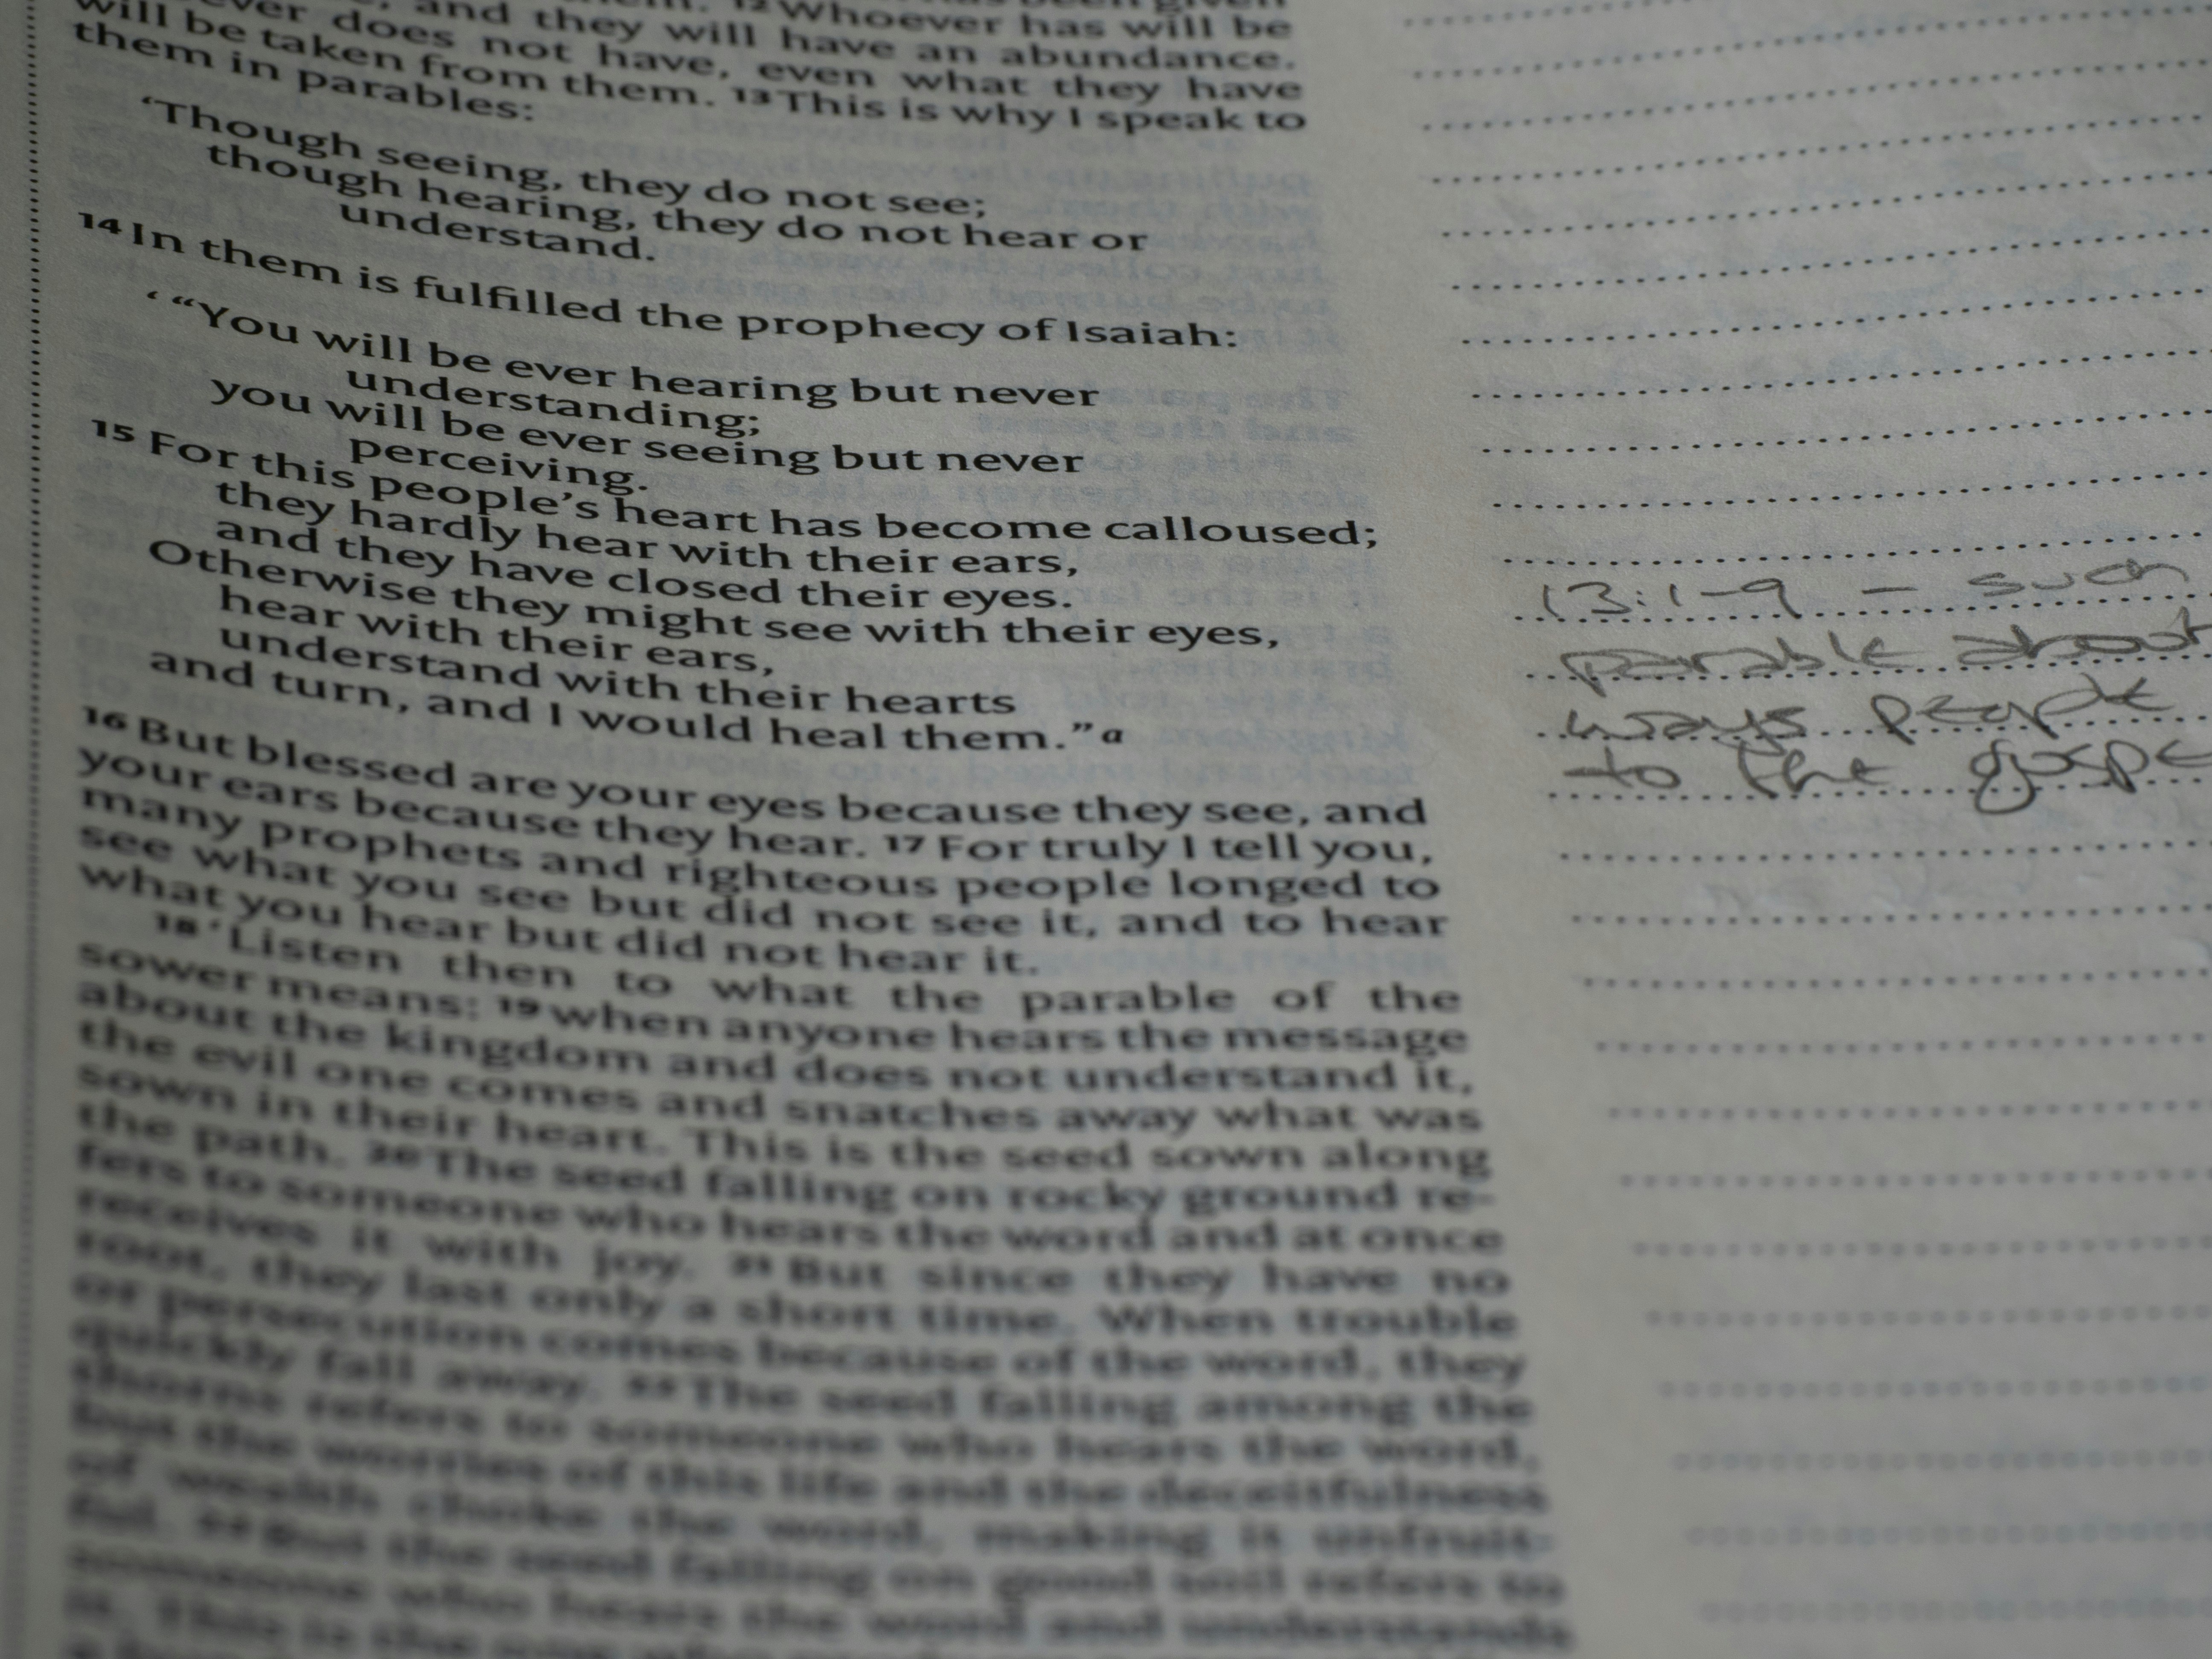 12 Whoever has will be
and they will have an abundance.
does not have, even what they have
will be taken from them. 13 This is why I speak to
them in parables:
‘Though seeing, they do not see;
though hearing, they do not hear or
understand.
14 In them is fulfilled the prophecy of Isaiah:
‘ “You will be ever hearing but never
understanding;
you will be ever seeing but never
perceiving.
15 For this people’s heart has become calloused;
they hardly hear with their ears,
and they have closed their eyes.
Otherwise they might see with their eyes,
hear with their ears,
understand with their hearts
and turn, and I would heal them.” a
16 But blessed are your eyes because they see, and
your ears because they hear. 17 For truly I tell you,
many prophets and righteous people longed to
see what you see but did not see it, and to hear
what you hear but did not hear it.
18 ‘Listen then to what the parable of the
sower means: 19 when anyone hears the message
about the kingdom and does not understand it,
the evil one comes and snatches away what was
sown in their heart. This is the seed sown along
the path. 20 The seed falling on rocky ground re-
fers to someone who hears the word and at once
receives it with joy. 21 But since they have no
root, they last only a short time. When trouble
or persecution comes because of the word, they
quickly fall away. 22 The seed falling among the
thorns refers to someone who hears the word,
but the worries of this life and the deceitfulness
of wealth choke the word, making it unfruit-
ful. 23 But the seed falling on good soil refers to
someone who hears the word and understands
it. This is the
13:1-9 - such
parable about
ways people
to the gospe